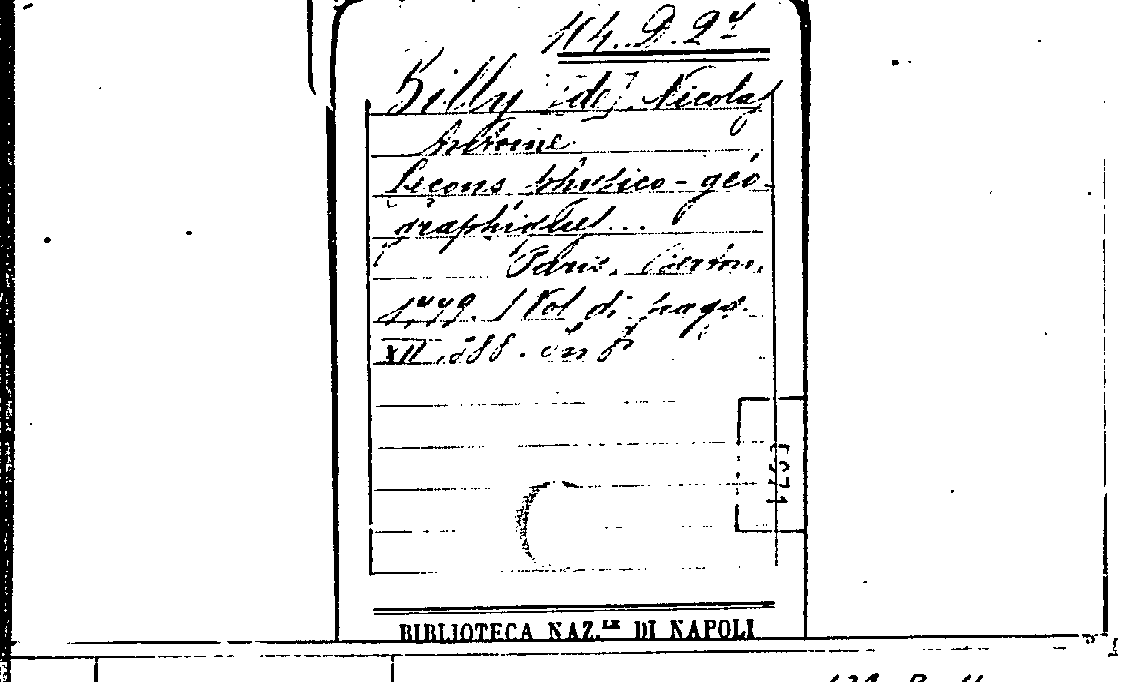 114. D. 24
Billy [de] Nicolas
Antoine
Leçons physico-géo-
graphiques...
Paris,
1779. 1 Vol di pags.
XII, 388. in 8°
BIBLIOTECA NAZ.LE DI NAPOLI